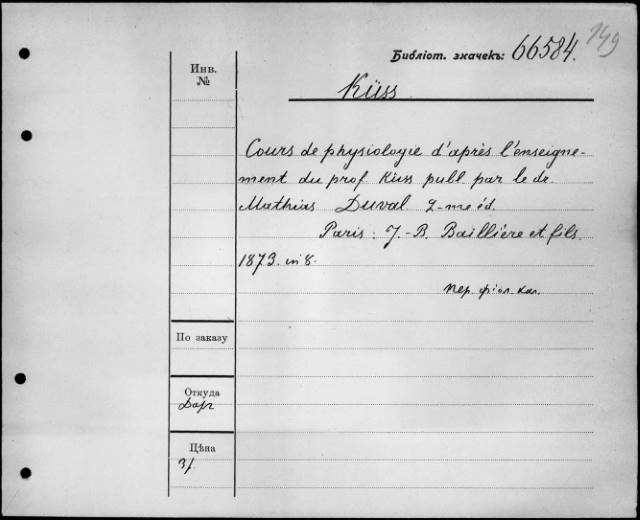 149
Библіот. значекъ: 66584.
Инв.
№
Küss
Cours de physiologie d'après l'enseigne-
ment du prof. Küss publ par le dr.
Mathias Duval 2-me éd.
Paris: J.-B. Baillière et fils.
1873. in 8.
По заказу
Откуда
Даръ
Цѣна
3/